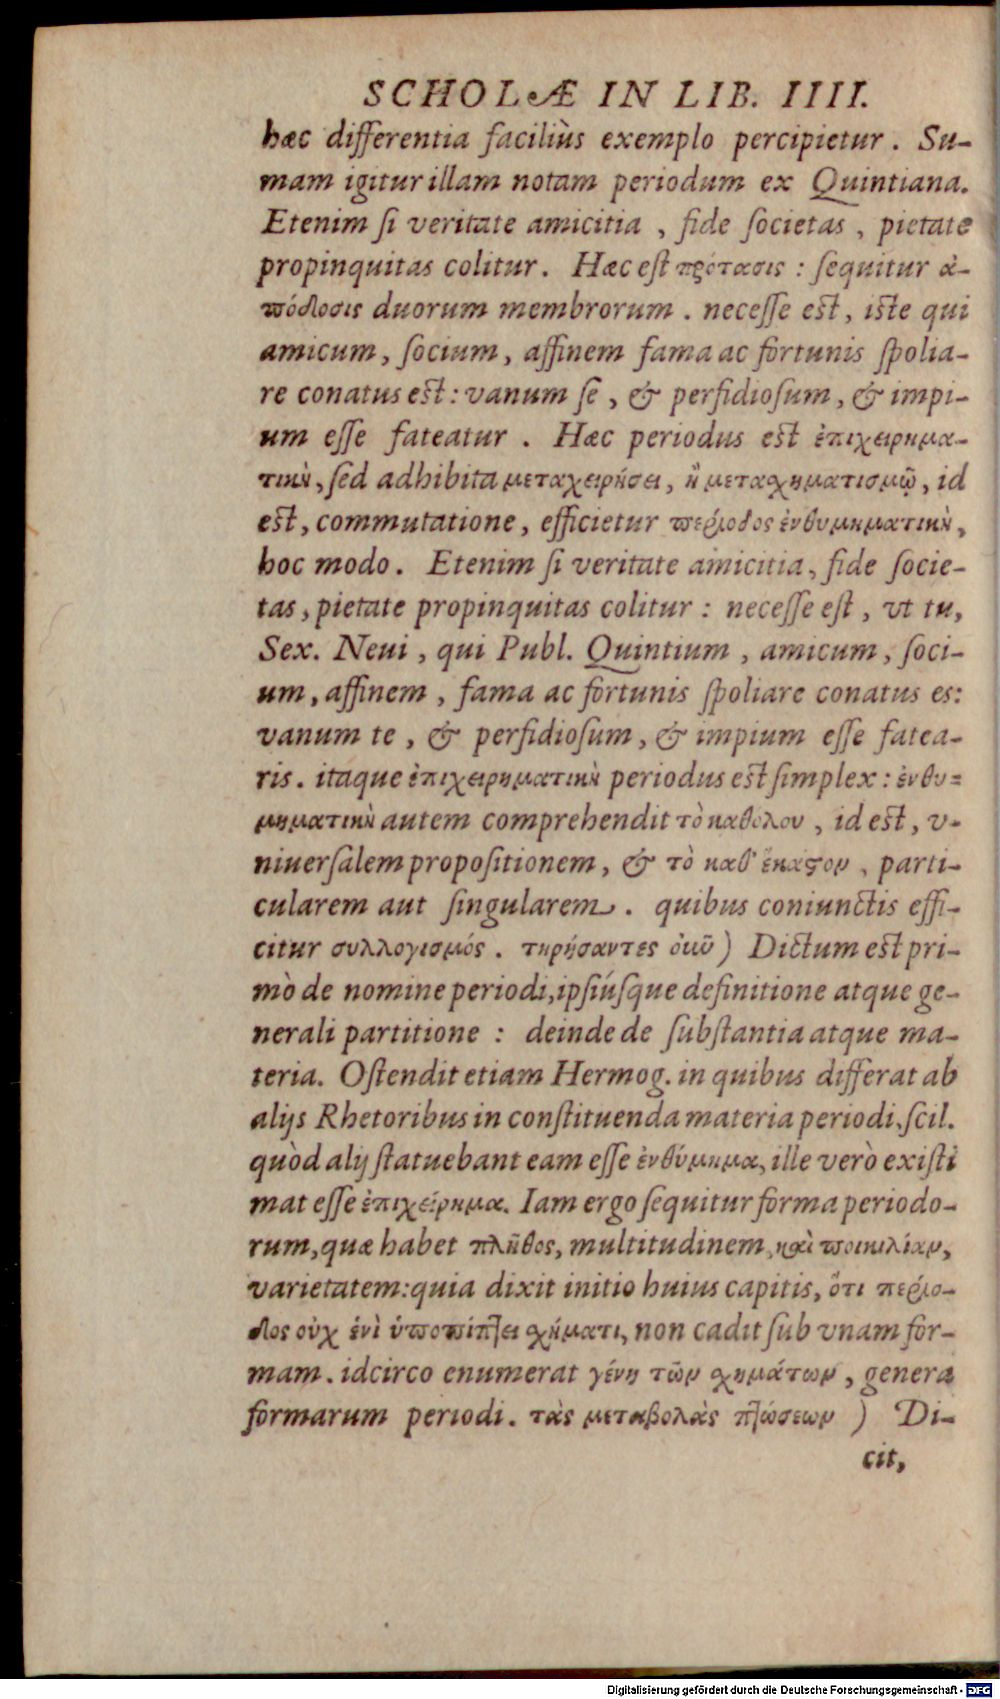 SCHOLÆ IN LIB. IIII.
hæc differentia faciliùs exemplo percipietur. Su-
mam igitur illam notam periodum ex Quintiana.
Etenim si veritate amicitia, fide societas, pietate
propinquitas colitur. Hæc est πρότασις: sequitur ἀ-
πόδοσις duorum membrorum. necesse est, iste qui
amicum, socium, affinem fama ac fortunis spolia-
re conatus est: vanum se, & perfidiosum, & impi-
um esse fateatur. Hæc periodus est ἐπιχειρημα-
τικὴ, sed adhibita μεταχειρήσει, ἢ μετασχηματισμῷ, id
est, commutatione, efficietur περίοδος ἐνθυμηματικὴ,
hoc modo. Etenim si veritate amicitia, fide socie-
tas, pietate propinquitas colitur: necesse est, vt tu,
Sex. Neui, qui Publ. Quintium, amicum, soci-
um, affinem, fama ac fortunis spoliare conatus es:
vanum te, & perfidiosum, & impium esse fatea-
ris. itaque ἐπιχειρηματικὴ periodus est simplex: ἐνθυ=
μηματικὴ autem comprehendit τὸ καθόλου, id est, v-
niuersalem propositionem, & τὸ καθ' ἕκαστον, parti-
cularem aut singularem. quibus coniunctis effi-
citur συλλογισμός. τηρήσαντες οὖν) Dictum est pri-
mò de nomine periodi, ipsiúsque definitione atque ge-
nerali partitione: deinde de substantia atque ma-
teria. Ostendit etiam Hermog. in quibus differat ab
alijs Rhetoribus in constituenda materia periodi, scil.
quòd alij statuebant eam esse ἐνθύμημα, ille verò existi
mat esse ἐπιχείρημα. Iam ergo sequitur forma periodo-
rum, quæ habet πλῆθος, multitudinem, καὶ ποικιλίαν,
varietatem: quia dixit initio huius capitis, ὅτι περίο-
δος οὐχ ἑνὶ ὑποπίπτει σχήματι, non cadit sub vnam for-
mam. idcirco enumerat γένη τῶν σχημάτων, genera
formarum periodi. τὰς μεταβολὰς πτώσεων) Di-
cit,
Digitalisierung gefördert durch die Deutsche Forschungsgemeinschaft - DFG